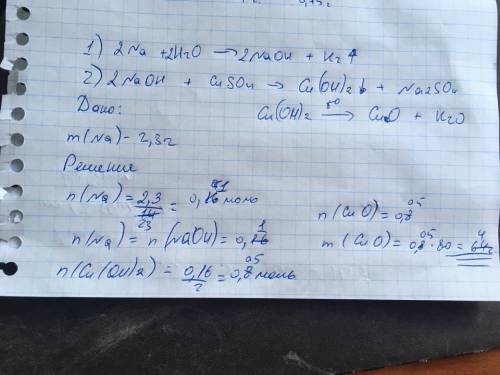 1) 2Na + 2H2O → 2NaOH + H2↑
2) 2NaOH + CuSO4 → Cu(OH)2↓ + Na2SO4
Дано:
Cu(OH)2 →t° CuO + H2O
m(Na) - 2,3г
Решение
n(Na) = 2,3/23 = 0,1 моль
n(CuO) = 0,05
n(Na) = n(NaOH) = 0,1
m(CuO) = 0,05 · 80 = 4г
n(Cu(OH)2) = 0,16/2 = 0,05 моль